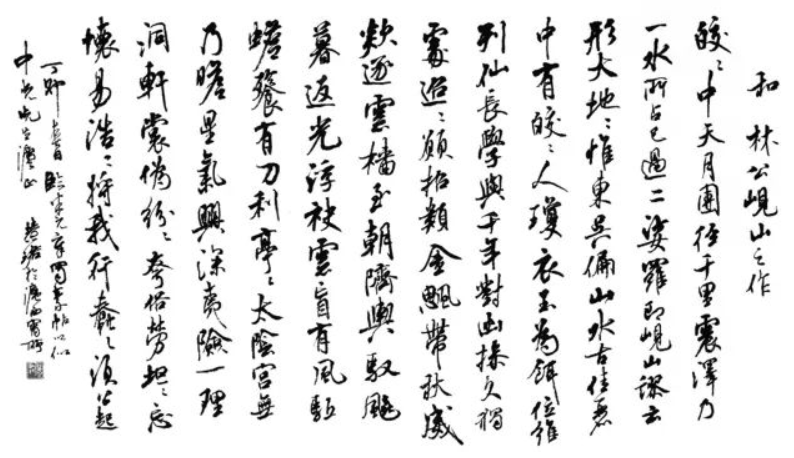 和林公峴山之作
皎〻中天月團徑千里震澤乃
一水所占已過二娑羅即峴山謬云
形大地〻惟東吳偏山水古佳麗
中有皎〻人瓊衣玉為餌位維
列仙長學與千年對幽操久獨
處迢〻願招類金颸帶秋威
欻逐雲檣至朝隮輿馭飆
暮返光浮袂雲盲有風驅
蟾餮有刀利亭〻太陰宮無
乃瞻星氣興深夷險一理
洞軒裳偽紛〻夸俗勞坦〻忘
懷易浩〻將我行蠢〻須公起
丁卯春日臨米元章蜀素帖以似
中先生正
於滬西寓所